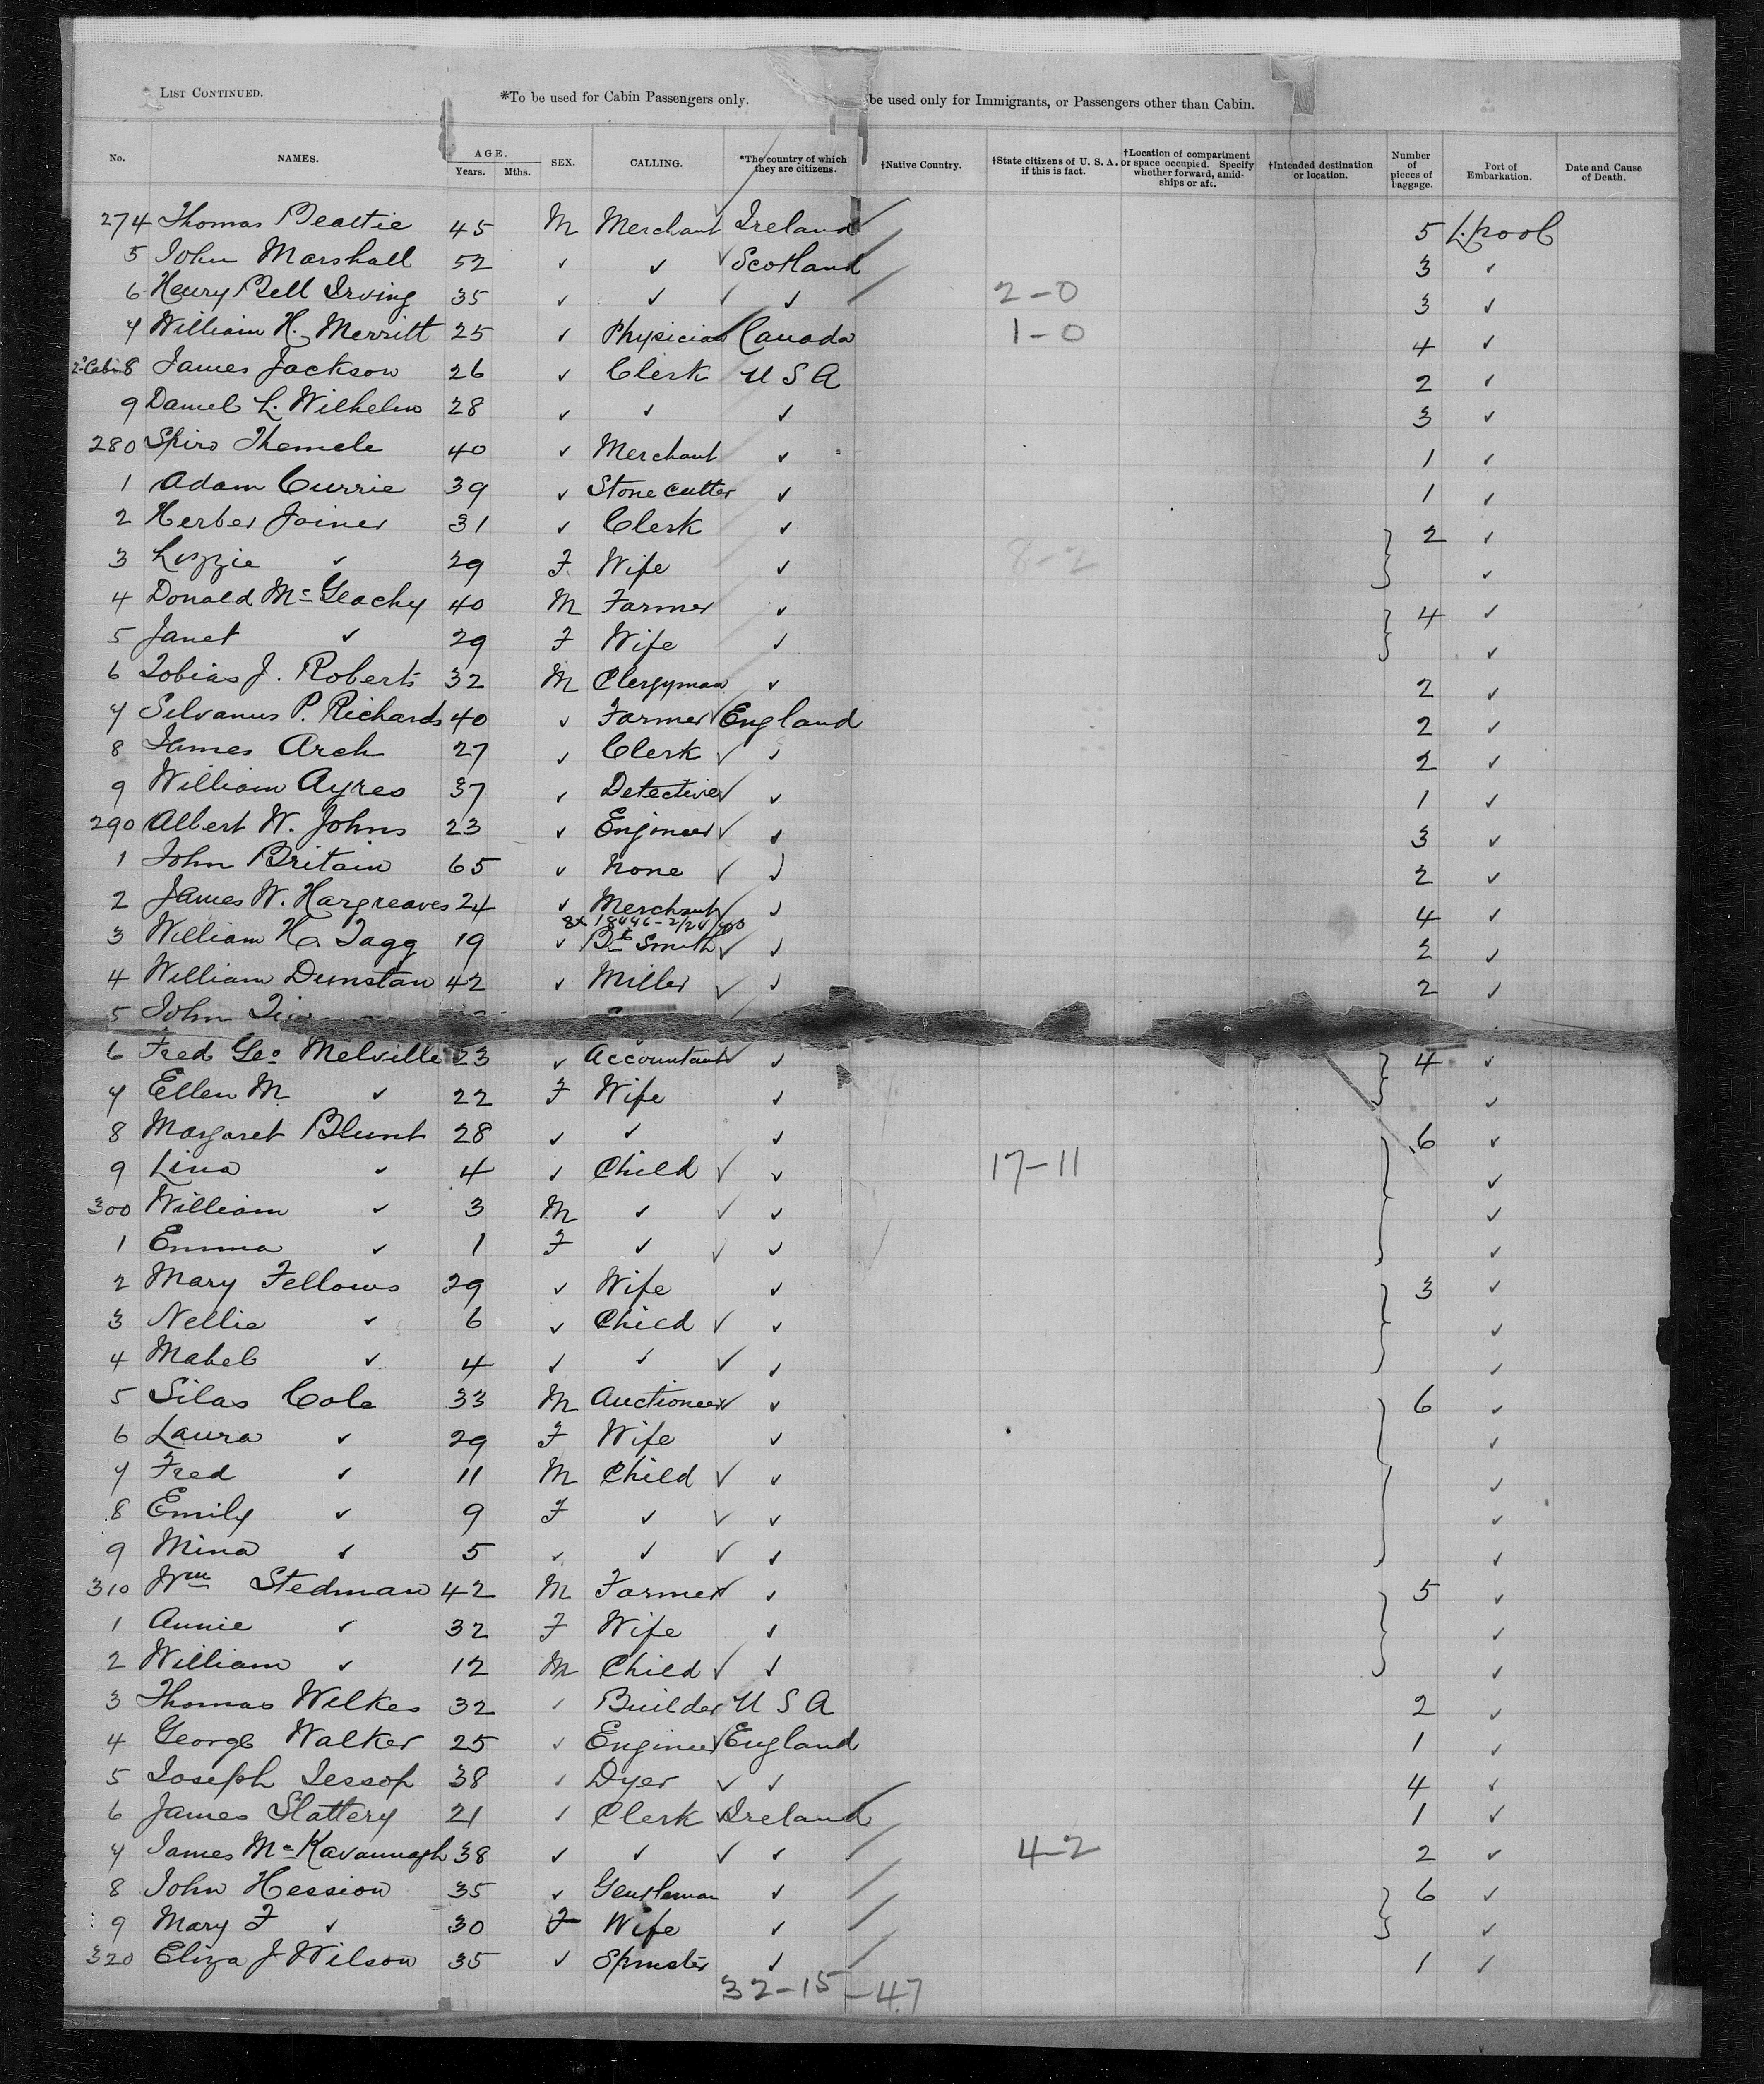 LIST CONTINUED. *To be used for Cabin Passengers only. be used only for Immigrants, or Passengers other than Cabin.
No. NAMES. AGE. Years. Mths. SEX. CALLING. *The country of which they are citizens. †Native Country. †State citizens of U. S. A. if this is fact. †Location of compartment or space occupied. Specify whether forward, amidships or aft. †Intended destination or location. Number of pieces of baggage. Port of Embarkation. Date and Cause of Death.
274 Thomas Beattie 45 M Merchant Ireland 5 L.pool
5 John Marshall 52 ✓ ✓ ✓ Scotland 3 ✓
6 Henry Bell Irving 35 ✓ ✓ ✓ ✓ 2-0 3 ✓
7 William H. Merritt 25 ✓ Physician Canada 1-0 4 ✓
2d Cabin 8 James Jackson 26 ✓ Clerk U S A 2 ✓
9 Daniel L. Wilhelm 28 ✓ ✓ ✓ 3 ✓
280 Spiro Themele 40 ✓ Merchant ✓ 1 ✓
1 Adam Currie 39 ✓ Stone cutter ✓ 1 ✓
2 Herber Joiner 31 ✓ Clerk ✓ 2 ✓
3 Lizzie ✓ 29 F. Wife ✓ 8-2 ✓
4 Donald McGeachy 40 M Farmer ✓ 4 ✓
5 Janet ✓ 29 F Wife ✓ ✓
6 Tobias J. Roberts 32 M Clergyman ✓ 2 ✓
7 Silvanus P. Richards 40 ✓ Farmer ✓ England 2 ✓
8 James Arch 27 ✓ Clerk ✓ ✓ 2 ✓
9 William Ayres 37 ✓ Detective ✓ ✓ 1 ✓
290 Albert W. Johns 23 ✓ Engineer ✓ ✓ 3 ✓
1 John Britain 65 ✓ None ✓ ✓ 2 ✓
2 James W. Hargreaves 24 ✓ Merchant ✓ ✓ 4 ✓
3 William H. Tagg 19 ✓ Bk Smith ✓ ✓ 2 ✓
4 William Dunstan 42 ✓ Miller ✓ ✓ 2 ✓
5 John
6 Fred Geo Melville 23 ✓ Accountant ✓ ✓ 4 ✓
7 Ellen M ✓ 22 F Wife ✓ ✓
8 Margaret Blunt 28 ✓ ✓ ✓ 6 ✓
9 Lina ✓ 4 ✓ Child ✓ ✓ 17-11 ✓
300 William ✓ 3 M ✓ ✓ ✓ ✓
1 Emma ✓ 1 F ✓ ✓ ✓ ✓
2 Mary Fellows 29 ✓ Wife ✓ 3 ✓
3 Nellie ✓ 6 ✓ Child ✓ ✓ ✓
4 Mabel ✓ 4 ✓ ✓ ✓ ✓ ✓
5 Silas Cole 33 M Auctioneer ✓ ✓ 6 ✓
6 Laura ✓ 29 F Wife ✓ ✓
7 Fred ✓ 11 M Child ✓ ✓ ✓
8 Emily ✓ 9 F ✓ ✓ ✓ ✓
9 Mina ✓ 5 ✓ ✓ ✓ ✓ ✓
310 Wm Stedman 42 M Farmer ✓ ✓ 5 ✓
1 Annie ✓ 32 F Wife ✓ ✓
2 William ✓ 12 M Child ✓ ✓ ✓
3 Thomas Wilkes 32 ✓ Builder U S A 2 ✓
4 George Walker 25 ✓ Engineer ✓ England 1 ✓
5 Joseph Jessop 38 ✓ Dyer ✓ ✓ 4 ✓
6 James Slattery 21 ✓ Clerk ✓ Ireland 1 ✓
7 James McKavannagh 38 ✓ ✓ ✓ ✓ 4-2 2 ✓
8 John Hession 35 ✓ Gentleman ✓ 6 ✓
9 Mary F ✓ 30 F Wife ✓ ✓
320 Eliza J Wilson 35 ✓ Spinster ✓ 1 ✓
32-15-47